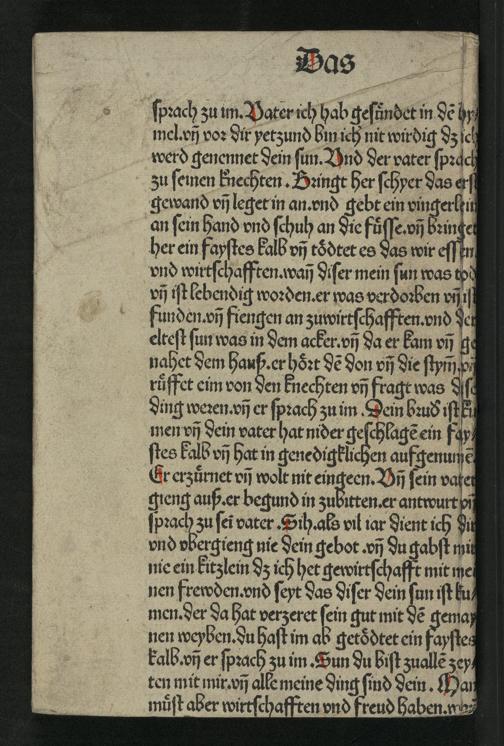 Das
sprach zu im. Vater ich hab gesündet in dē hy/
mel. vñ vor dir yetzund bin ich nit wirdig dz ich
werd genennet dein sun. Vnd der vater sprach
zu seinen knechten. Bringt her schyer das erst
gewand vñ leget in an. vnd gebt ein vingerlein
an sein hand vnd schuh an die füsse. vñ bringet
her ein faystes kalb vñ tödtet es das wir essen
vnd wirtschafften. wañ diser mein sun was tod
vñ ist lebendig worden. er was verdorben vñ ist
funden. vñ fiengen an zuwirtschafften. vnd der
eltest sun was in dem acker. vñ da er kam vñ ge
nahet dem hauß. er hört dē don vñ die stym̄. vñ
rüffet eim von den knechten vñ fragt was dise
ding weren. vñ er sprach zu im. Dein brud̄ ist ku
men vñ dein vater hat nider geschlagē ein fay/
stes kalb vñ hat in genedigklichen aufgenum̄ē.
Er erzürnet vñ wolt nit eingeen. Vñ sein vater
gieng auß. er begund in zubitten. er antwurt vñ
sprach zu sei vater. Sih. als vil iar dient ich dir
vnd vbergieng nie dein gebot. vñ du gabst mir
nie ein kitzlein dz ich het gewirtschafft mit mei
nen frewden. vnd seyt das diser dein sun ist ku/
men. der da hat verzeret sein gut mit dē gemay
nen weyben. du hast im ab getödtet ein faystes
kalb. vñ er sprach zu im. Sun du bist zuallē zey/
ten mit mir. vñ alle meine ding sind dein. Man
müst aber wirtschafften vnd freud haben.